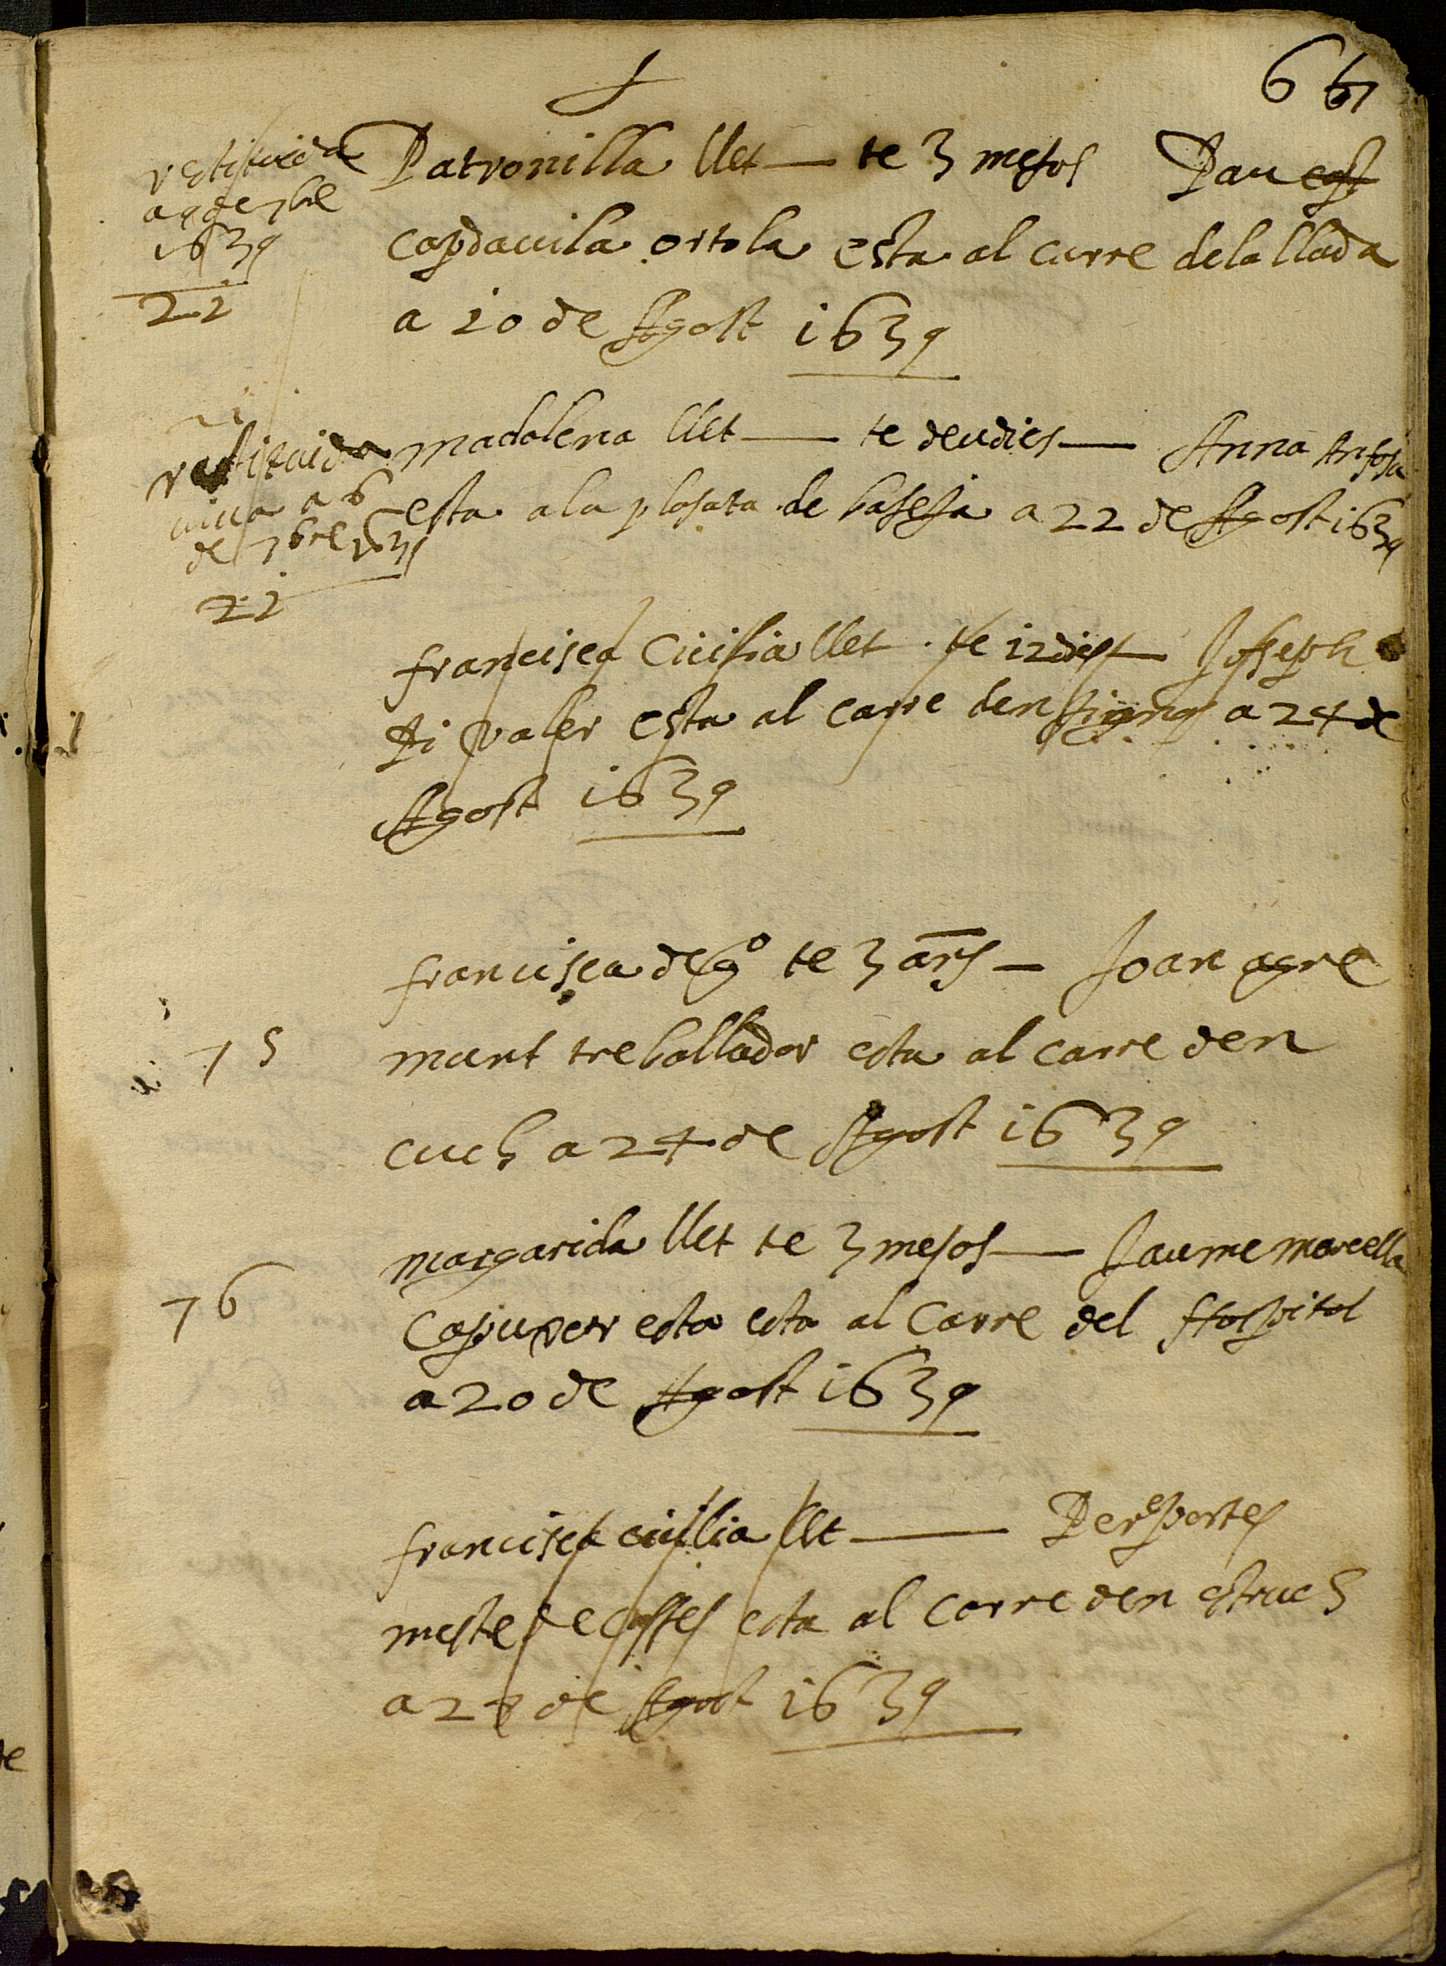 66
restituida
a 9 de 7bre
1639
22
Patronilla llet — te 3 mesos Pau
capdauila ortola esta al carre dela llada
a 10 de Agost 1639
restituida
viua a 6
de 7bre 1639
22
madalena llet — te deu dies — Anna
esta a la plasata de basesa a 22 de Agost 1639
francisca Cicilia llet te 12 dies — Joseph
Ri valer esta al carre den a 24 de
Agost 1639
75
francisca de te 3 ans — Joan agre
munt treballador esta al carre den
cuch a 24 de Agost 1639
76
margarida llet te 3 mesos — Jaume marcella
Capuxer esta esta al Carre del Hospital
a 20 de Agost 1639
francisca cicilia llet — Pere portes
meste de esta al carre den estruch
a 28 de Agost 1639